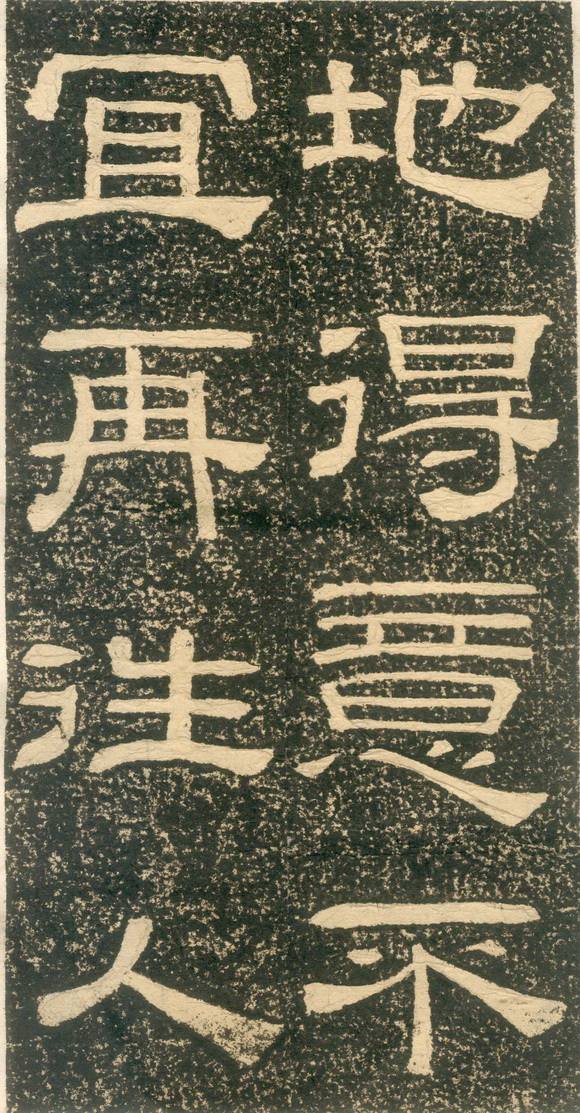 地得意不
宜再徃人